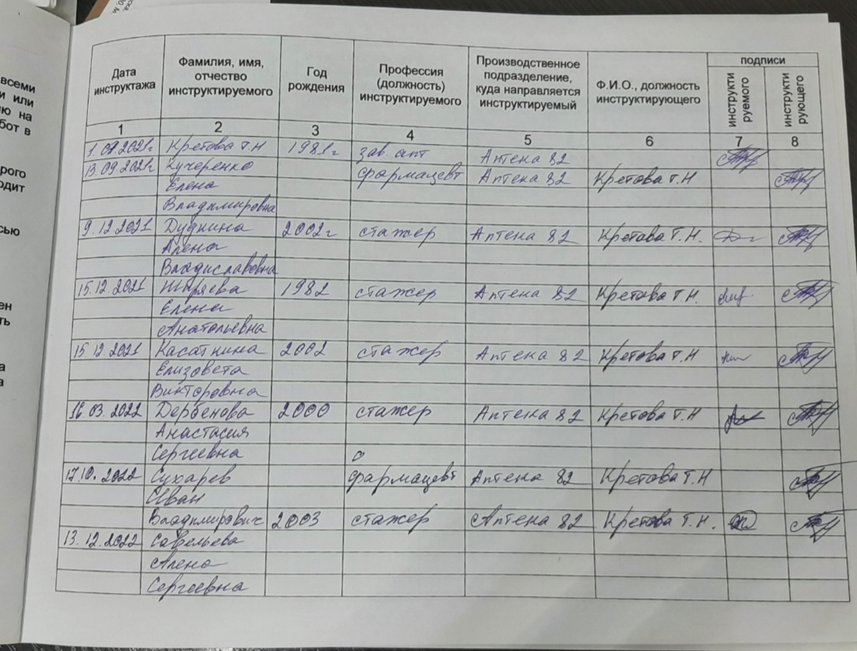 всеми
и или
ю на
бот в
рого
одит
сью
ен
ть
а
а
Дата инструктажа
Фамилия, имя, отчество инструктируемого
Год рождения
Профессия (должность) инструктируемого
Производственное подразделение, куда направляется инструктируемый
Ф.И.О., должность инструктирующего
подписи
инструкти руемого
инструкти рующего
1 2 3 4 5 6 7 8
1.09.2021г Кретова Т.Н 1981г зав. апт Аптека 82
13.09.2021г Кучеренко фармацевт Аптека 82 Кретова Т.Н
Елена
Владимировна
9.12.2021 Дудкина 2002г стажер Аптека 82 Кретова Т.Н.
Алена
Владиславовна
15.12.2021 1982 стажер Аптека 82 Кретова Т.Н
Елена
Анатольевна
15.12.2021 Касаткина 2002 стажер Аптека 82 Кретова Т.Н
Елизовета
Викторовна
16.03.2022 Дербенова 2000 стажер Аптека 82 Кретова Т.Н
Анастасия
Сергеевна
17.10.2022 Сухарев фармацевт Аптека 82 Кретова Т.Н
Иван
Владимирович 2003 стажер Аптека 82 Кретова Т.Н.
13.12.2022 Савельева
Алена
Сергеевна